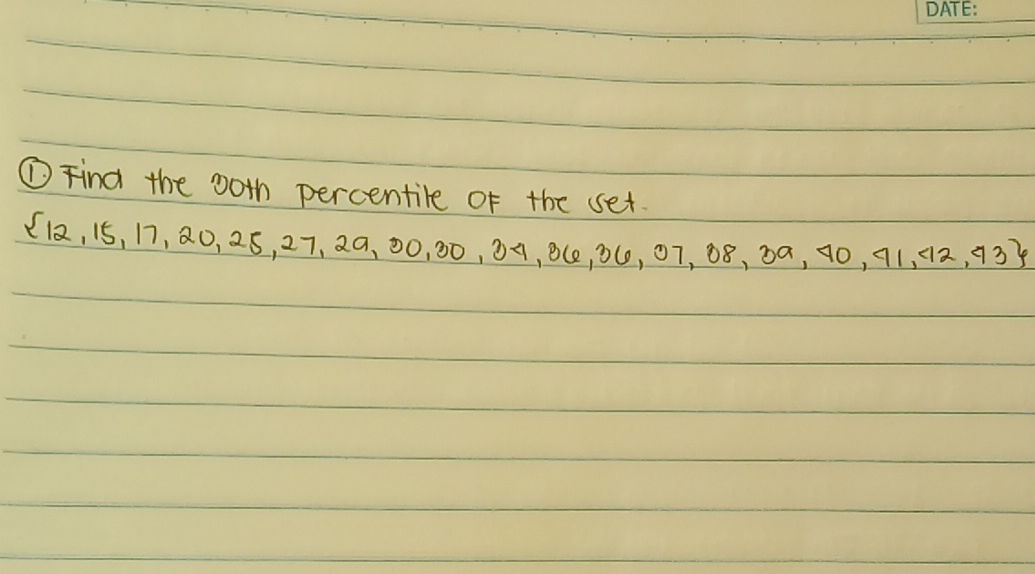 DATE:
① Find the 30th percentile of the set.
{12, 15, 17, 20, 25, 27, 29, 30, 30, 34, 36, 36, 37, 38, 39, 40, 41, 42, 43}